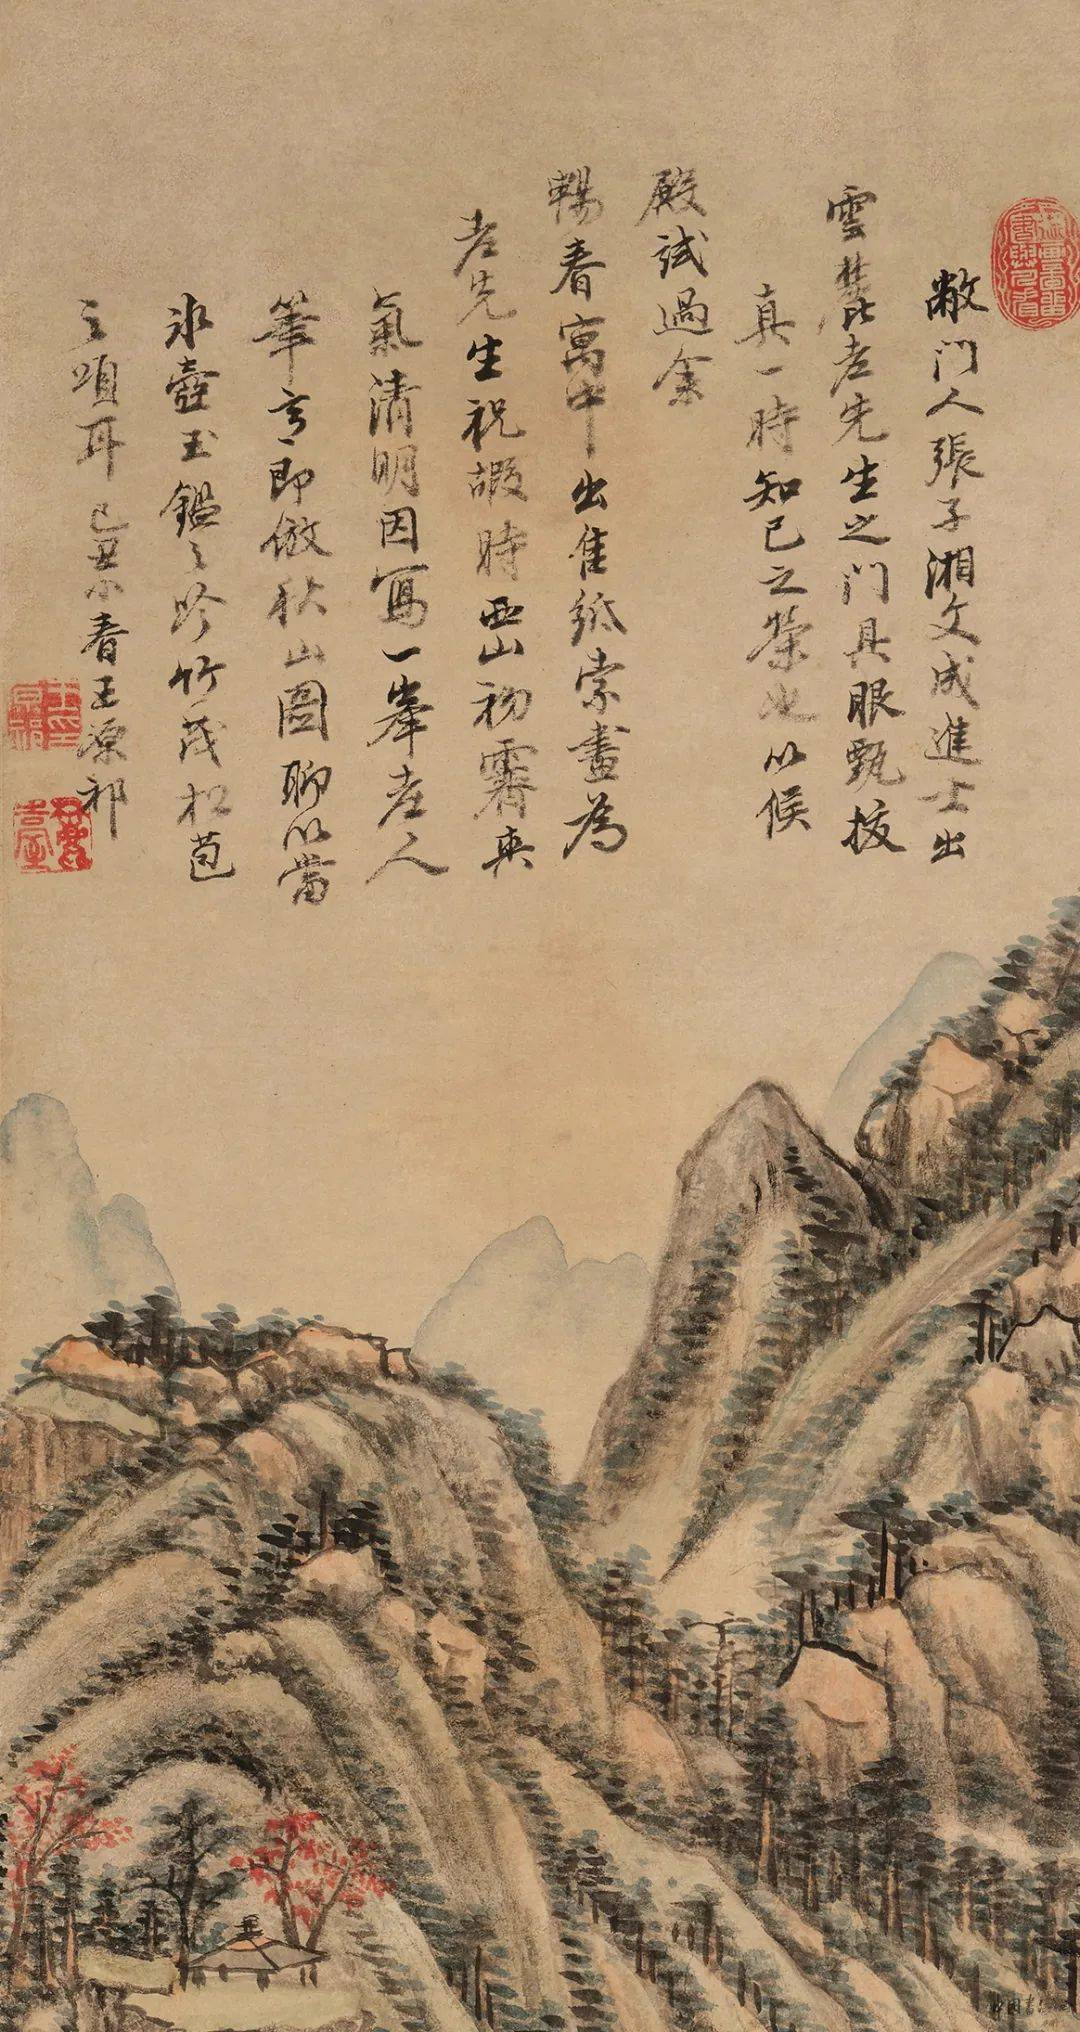 敝門人張子湘文成進士出
雲麓老先生之門具眼甄拔
真一時知己之榮也以候
殿試過余
暢春寓中出隹紙索畫為
老先生祝嘏時西山初霽爽
氣清明因寫一峯老人
筆意即倣秋山圖聊以當
冰壺玉鑑之吟竹茂松苞
之頌耳己丑小春王原祁
王原祁印
麓臺